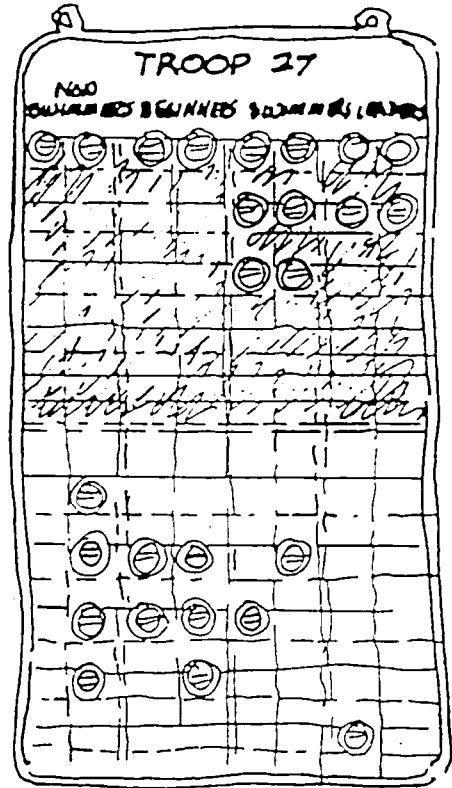 TROOP 27
NON
SWIMMERS BEGINNERS SWIMMERS LEADERS